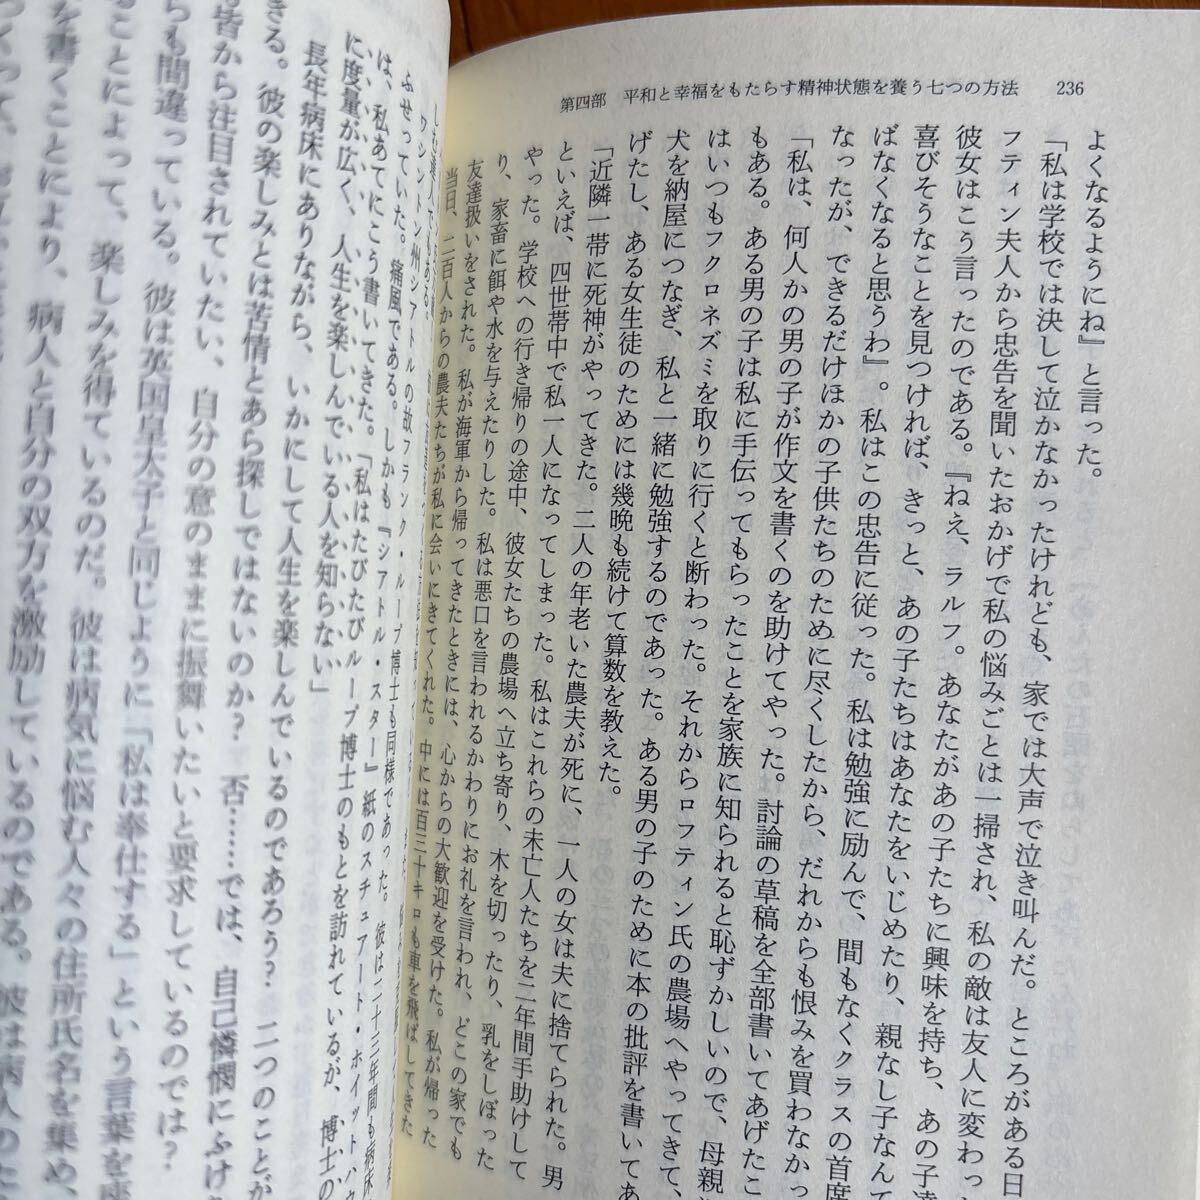 第四部 平和と幸福をもたらす精神状態を養う七つの方法 236
よくなるようにね』と言った。
「私は学校では決して泣かなかったけれども、家では大声で泣き叫んだ。ところがある日
フティン夫人から忠告を聞いたおかげで私の悩みごとは一掃され、私の敵は友人に変わっ
彼女はこう言ったのである。『ねえ、ラルフ。あなたがあの子たちに興味を持ち、あの子達
喜びそうなことを見つければ、きっと、あの子たちはあなたをいじめたり、親なし子なんて
ばなくなると思うわ』。私はこの忠告に従った。私は勉強に励んで、間もなくクラスの首席
なったが、できるだけほかの子供たちのために尽くしたから、だれからも恨みを買わなかっ
「私は、何人かの男の子が作文を書くのを助けてやった。討論の草稿を全部書いてあげたこ
もある。ある男の子は私に手伝ってもらったことを家族に知られると恥ずかしいので、母親
はいつもフクロネズミを取りに行くと断わった。それからロフティン氏の農場へやってきて、
犬を納屋につなぎ、私と一緒に勉強するのであった。ある男の子のために本の批評を書いてあ
げたし、ある女生徒のためには幾晩も続けて算数を教えた。
「近隣一帯に死神がやってきた。二人の年老いた農夫が死に、一人の女は夫に捨てられた。男
といえば、四世帯中で私一人になってしまった。私はこれらの未亡人たちを二年間手助けして
やった。学校への行き帰りの途中、彼女たちの農場へ立ち寄り、木を切ったり、乳をしぼった
り、家畜に餌や水を与えたりした。私は悪口を言われるかわりにお礼を言われ、どこの家でも
友達扱いをされた。私が海軍から帰ってきたときには、心からの大歓迎を受けた。私が帰った
当日、二百人からの農夫たちが私に会いにきてくれた。中には百三十キロも車を飛ばしてきた
ワシントン州シアトルの故フランク・ループ博士も同様であった。彼は二十三年間も病床
ふせっていた。痛風である。しかも『シアトル・スター』紙のスチュアート・ホイットハウ
は、私あてにこう書いてきた。「私はたびたびループ博士のもとを訪れているが、博士の
に度量が広く、人生を楽しんでいる人を知らない」
長年病床にありながら、いかにして人生を楽しんでいるのであろう？ 二つのことが
きる。彼の楽しみとは苦情とあら探しではないのか？ 否……では、自己憐憫にふけ
皆から注目されていたい、自分の意のままに振舞いたいと要求しているのでは？
らも間違っている。彼は英国皇太子と同じように「私は奉仕する」という言葉を座
ることによって、楽しみを得ているのだ。彼は病気に悩む人々の住所氏名を集め、
を書くことにより、病人と自分の双方を激励しているのである。彼は病人のた